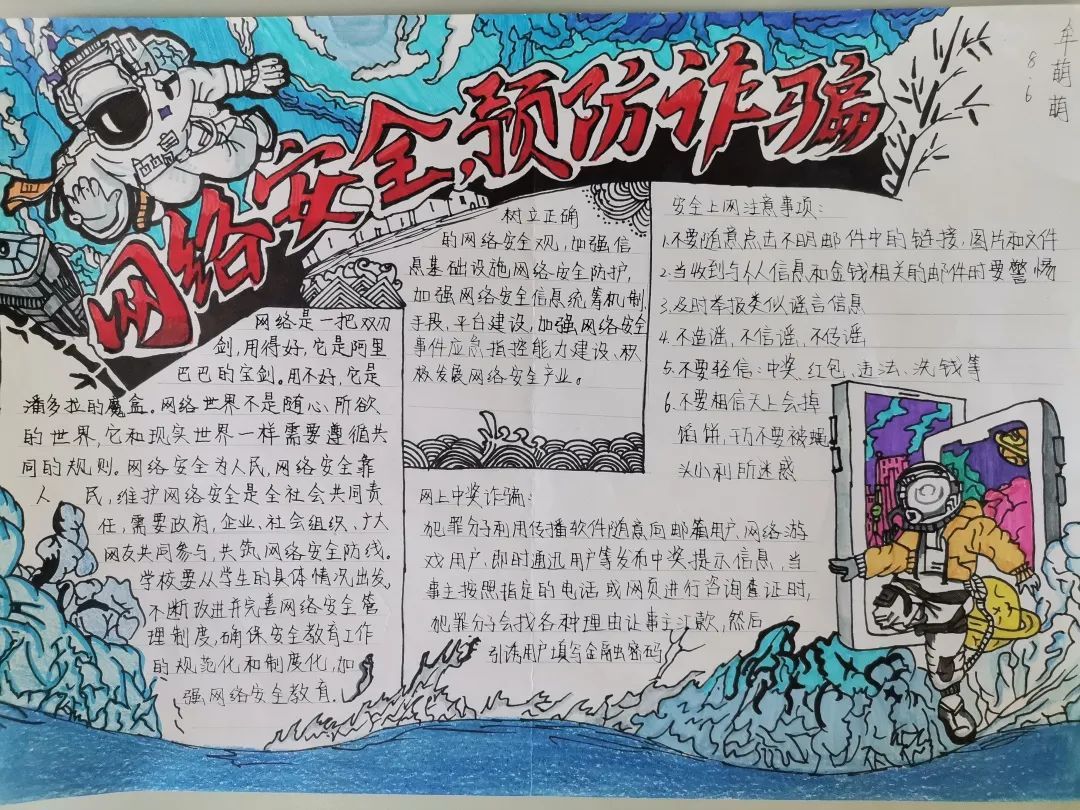 网络安全,预防诈骗
牟萌萌
8.6
网络是一把双刃
剑,用得好,它是阿里
巴巴的宝剑。用不好,它是
潘多拉的魔盒。网络世界不是随心所欲
的世界,它和现实世界一样需要遵循共
同的规则。网络安全为人民,网络安全靠
人民,维护网络安全是全社会共同责
任,需要政府、企业、社会组织、广大
网友共同参与,共筑网络安全防线。
学校要从学生的具体情况出发,
不断改进并完善网络安全管
理制度,确保安全教育工作
的规范化和制度化,加
强网络安全教育.
树立正确
的网络安全观,加强信
息基础设施网络安全防护,
加强网络安全信息统筹机制,
手段、平台建设,加强网络安全
事件应急指挥能力建设、积
极发展网络安全产业。
安全上网注意事项:
1.不要随意点击不明邮件中的链接,图片和文件
2.当收到与个人信息和金钱相关的邮件时要警惕
3.及时举报类似谣言信息
4.不造谣,不信谣,不传谣,
5.不要轻信:中奖、红包、违法、洗钱等
6.不要相信天上会掉
馅饼,千万不要被
头小利所迷惑
网上中奖诈骗:
犯罪分子利用传播软件随意向邮箱用户、网络游
戏用户、即时通迅用户等发布中奖提示信息,当
事主按照指定的电话或网页进行咨询查证时,
犯罪分子会找各种理由让事主汇款,然后
引诱用户填写金融密码